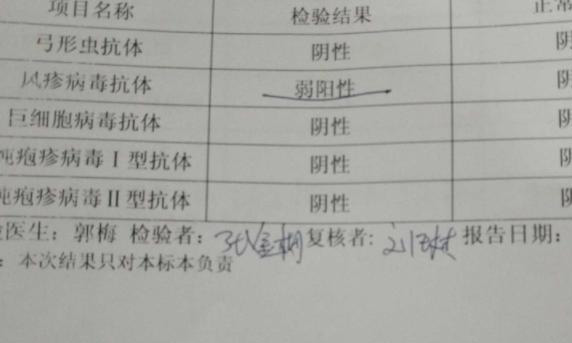 项目名称 检验结果 正常
弓形虫抗体 阴性 阴
风疹病毒抗体 弱阳性 阴
巨细胞病毒抗体 阴性 阴
疱疹病毒Ⅰ型抗体 阴性 阴
疱疹病毒Ⅱ型抗体 阴性 阴
医生：郭梅 检验者： 复核者: 报告日期：
：本次结果只对本标本负责